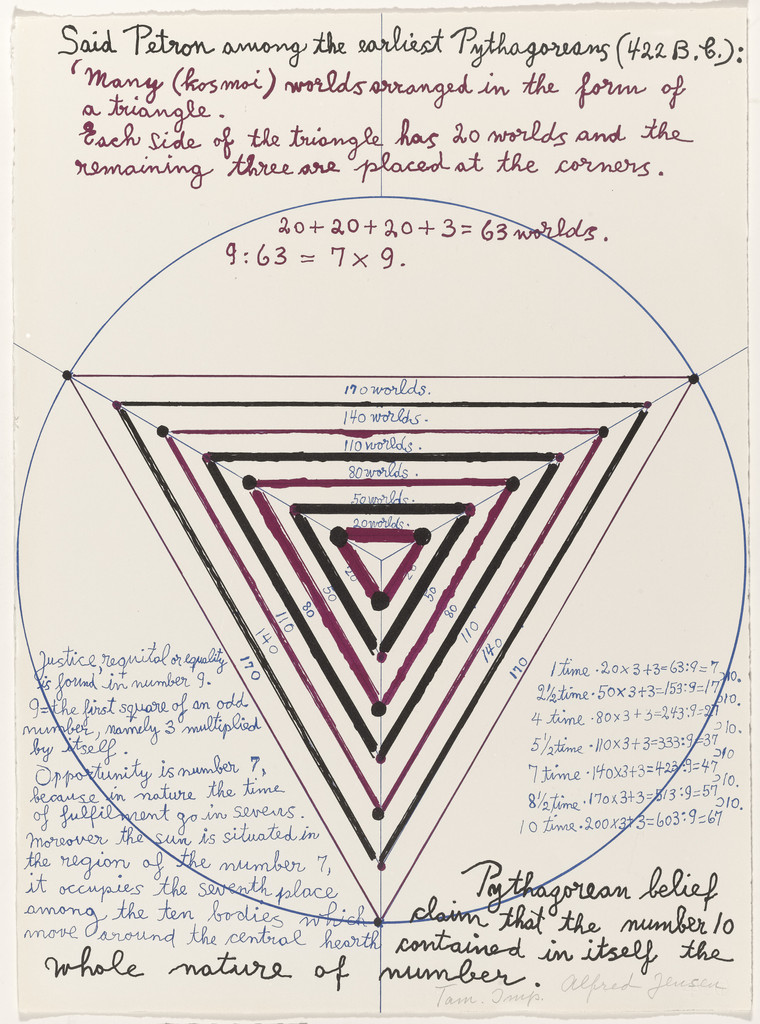 Said Petron among the earliest Pythagoreans (422 B.C.):
'Many (kosmoi) worlds arranged in the form of
a triangle.
Each side of the triangle has 20 worlds and the
remaining three are placed at the corners.
20+20+20+3=63 worlds.
9:63 = 7 x 9.
170 worlds.
140 worlds.
110 worlds.
80 worlds.
50 worlds.
20 worlds.
20 20
50 50
80 80
110 110
140 140
170 170
Justice, requital or equality
is found in number 9.
9=the first square of an odd
number, namely 3 multiplied
by itself.
Opportunity is number 7,
because in nature the time
of fulfilment go in sevens.
Moreover the sun is situated in
the region of the number 7,
it occupies the seventh place
among the ten bodies which
move around the central hearth
1 time · 20x3+3=63:9=7
>10.
2½ time · 50x3+3=153:9=17
>10.
4 time · 80x3+3=243:9=27
>10.
5½ time · 110x3+3=333:9=37
>10
7 time · 140x3+3=423:9=47
>10.
8½ time · 170x3+3=513:9=57
>10.
10 time · 200x3+3=603:9=67
Pythagorean belief
claim that the number 10
contained in itself the
whole nature of number.
Tam. Imp. Alfred Jensen